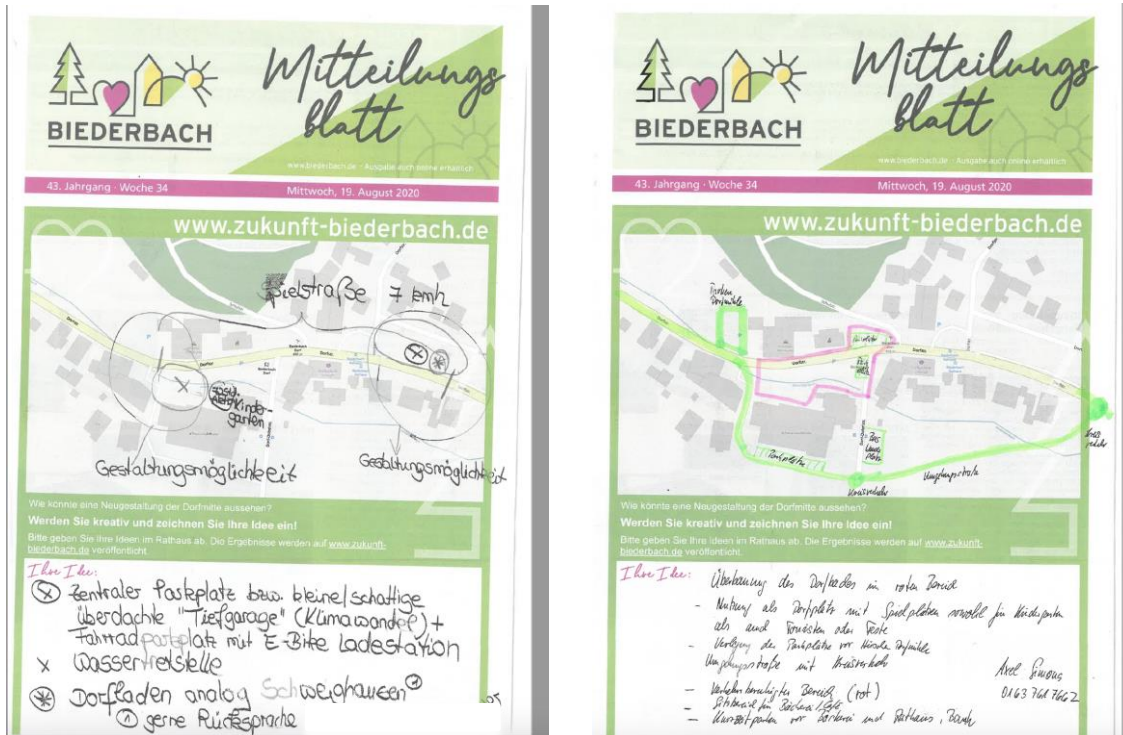 BIEDERBACH
Mitteilungs
blatt
www.biederbach.de - Ausgabe auch online erhältlich
43. Jahrgang · Woche 34 Mittwoch, 19. August 2020
www.zukunft-biederbach.de
Spielstraße 7 kmh
Kinder-
garten
Gestaltungsmöglichkeit
Gestaltungsmöglichkeit
Wie könnte eine Neugestaltung der Dorfmitte aussehen?
Werden Sie kreativ und zeichnen Sie Ihre Idee ein!
Bitte geben Sie Ihre Ideen im Rathaus ab. Die Ergebnisse werden auf www.zukunft-
biederbach.de veröffentlicht.
Ihre Idee:
Zentraler Parkplatz bzw. kleine/schattige
überdachte "Tiefgarage" (Klimawandel) +
Fahrradparkplatz mit E-Bike Ladestation
x Wassertretstelle
Dorfladen analog Schweighausen ①
① gerne Rücksprache
BIEDERBACH
Mitteilungs
blatt
www.biederbach.de - Ausgabe auch online erhältlich
43. Jahrgang · Woche 34 Mittwoch, 19. August 2020
www.zukunft-biederbach.de
Dorfmühle
Parkplätze
Kreisverkehr
Umgehungsstraße
Wie könnte eine Neugestaltung der Dorfmitte aussehen?
Werden Sie kreativ und zeichnen Sie Ihre Idee ein!
Bitte geben Sie Ihre Ideen im Rathaus ab. Die Ergebnisse werden auf www.zukunft-
biederbach.de veröffentlicht.
Ihre Idee:
Überbauung des Dorfbaches im roten Bereich
- Nutzung als Dorfplatz mit Spielplätzen sowohl für Kindergarten
als auch Touristen oder Feste
- Verlegung der Parkplätze vor Dorfmühle
Umgehungsstraße mit Kreisverkehr
Axel Simons
0163 761 7662
- Verkehrsberuhigter Bereich (rot)
- Sitzbereich für Bäckerei/Café
- Kurzzeitparken vor Bäckerei und Rathaus, Bank